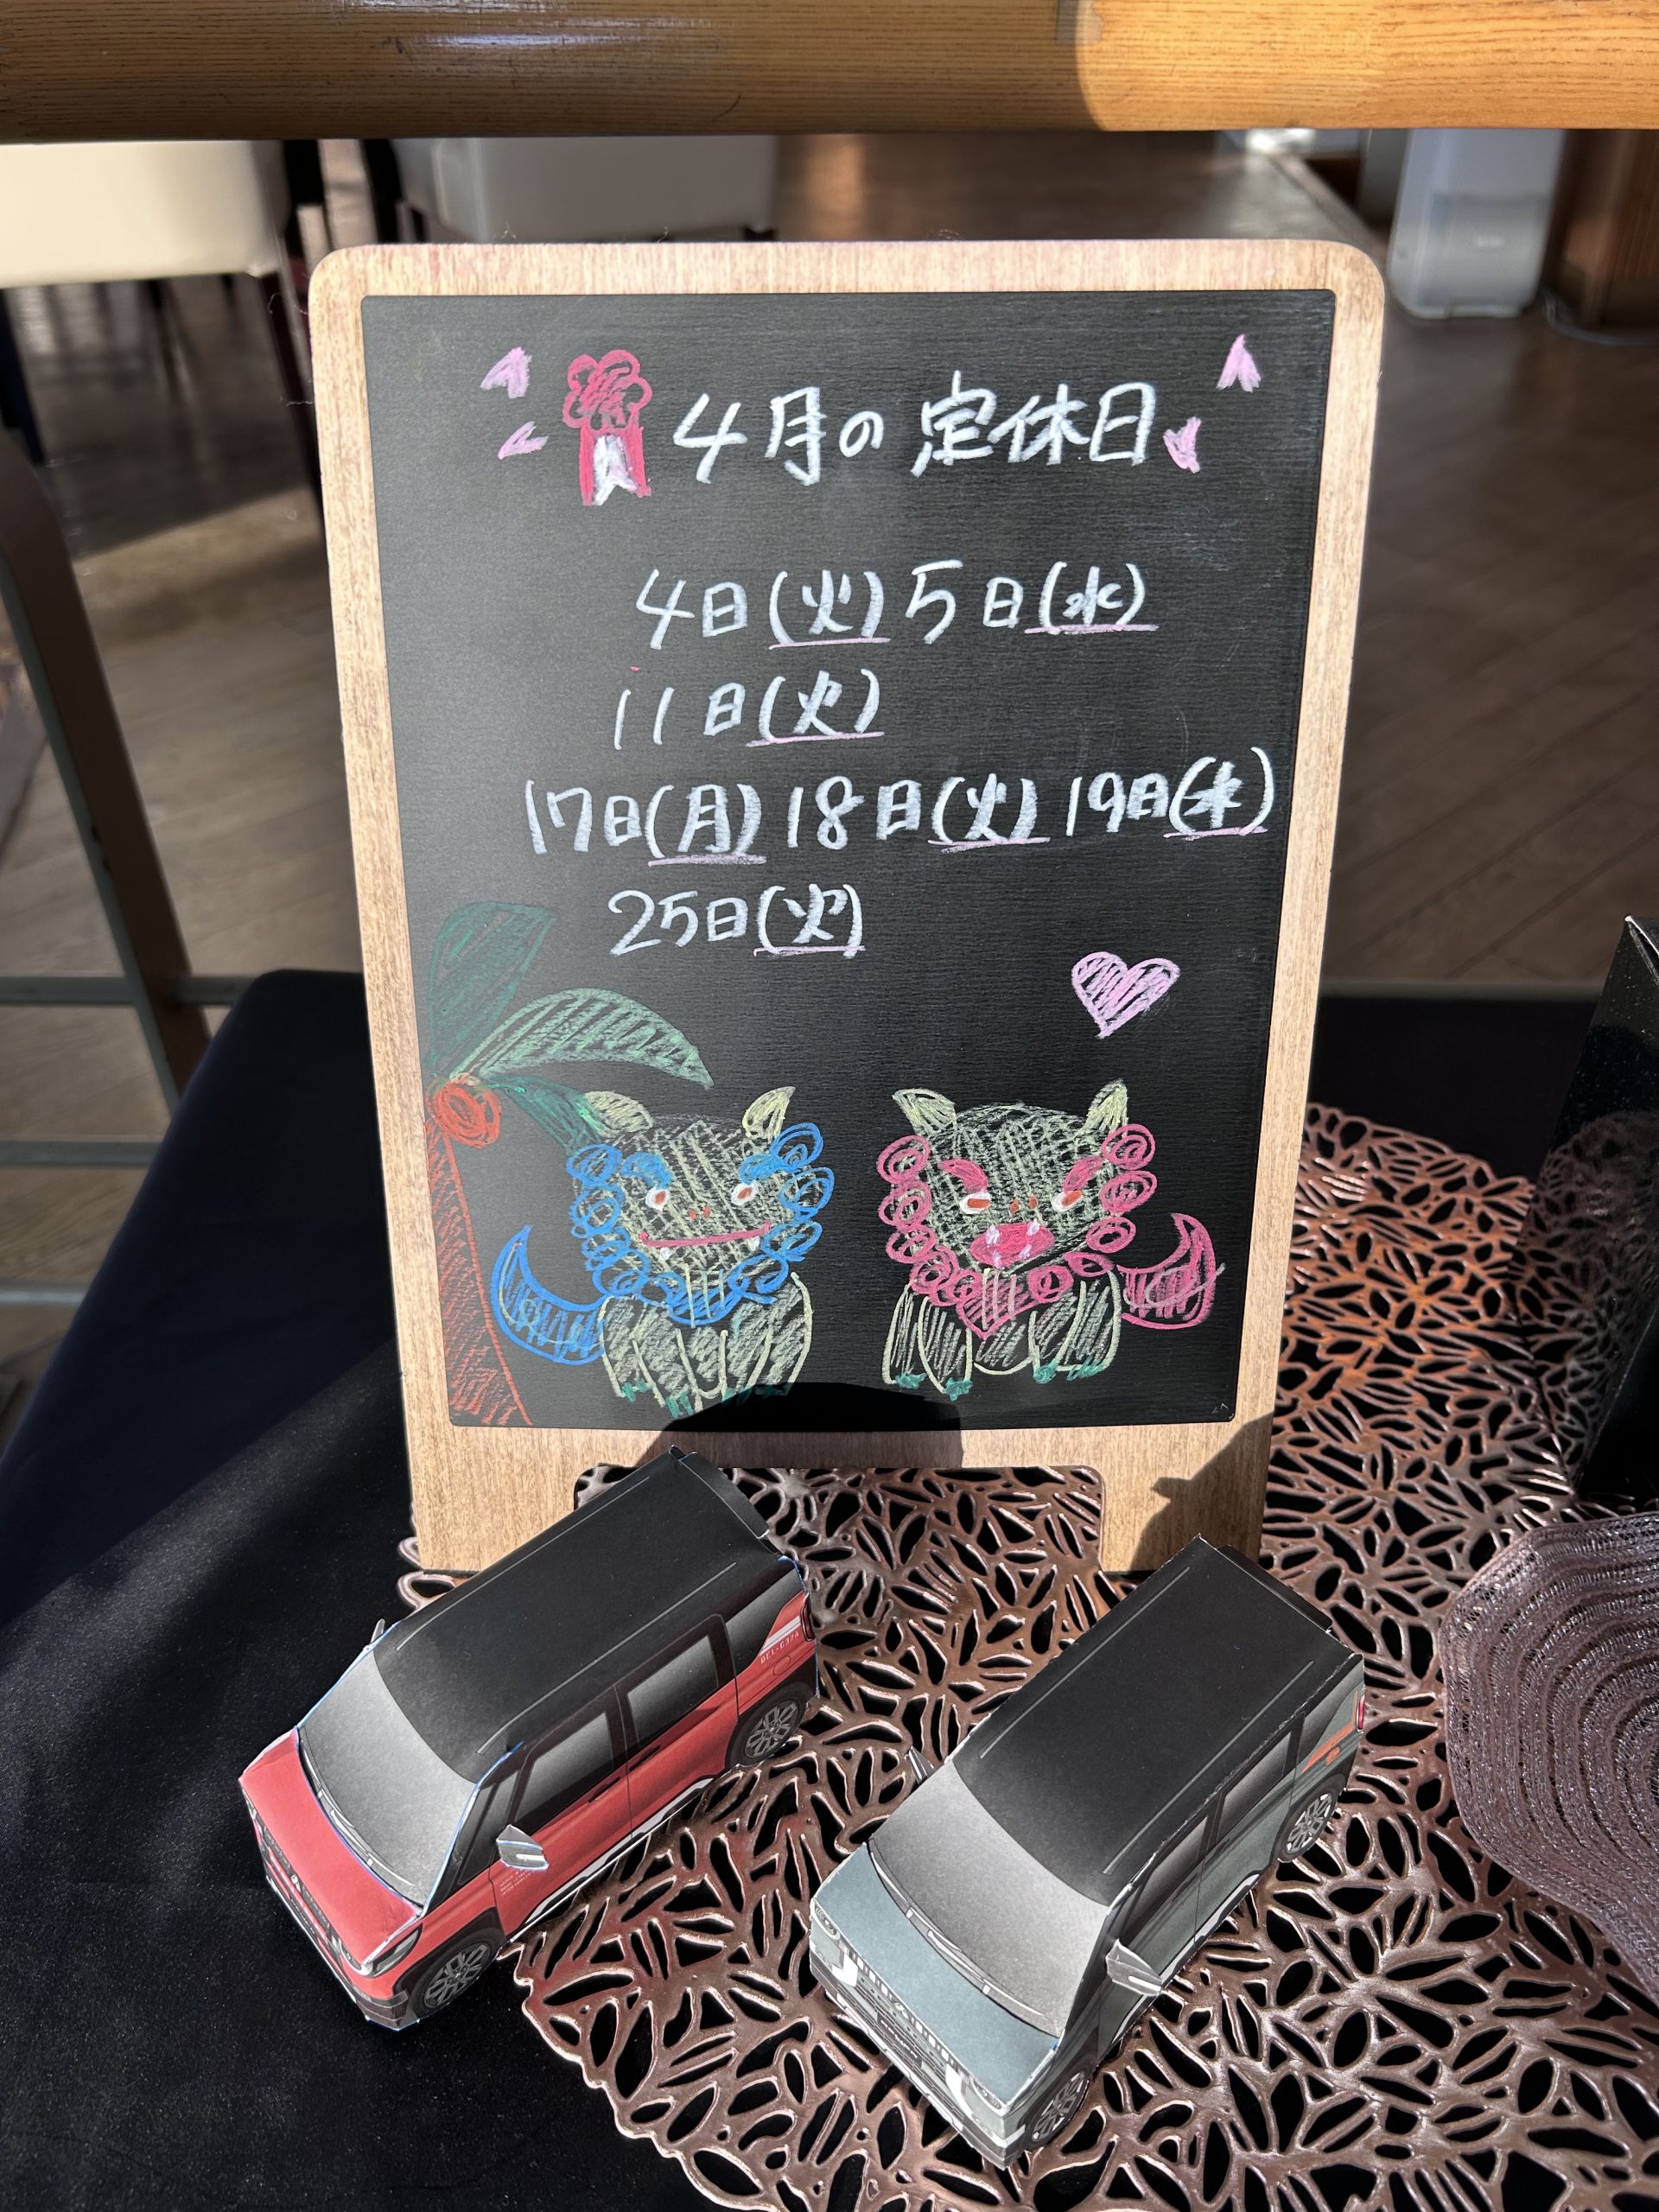 祝 4月の定休日
4日(火) 5日(水)
11日(火)
17日(月) 18日(火) 19日(水)
25日(火)